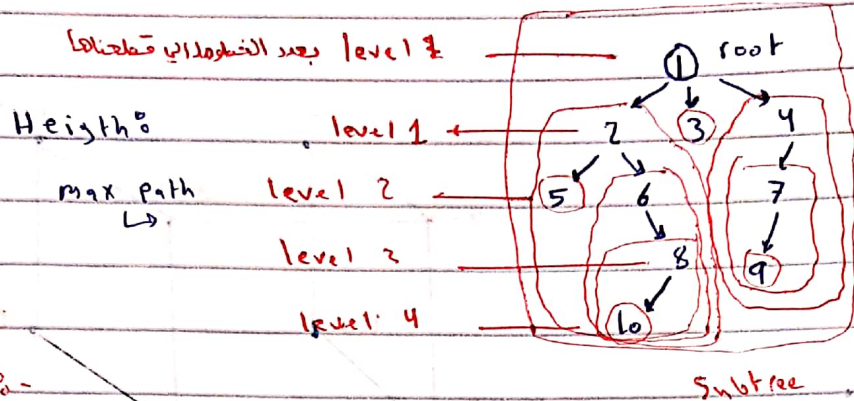 level 1 بعدد الخطوط الي قطعناها
1 root
Heigth:
level 1
2 3 4
max path
level 2
5 6 7
level 3
8 9
level 4
10
Subtree